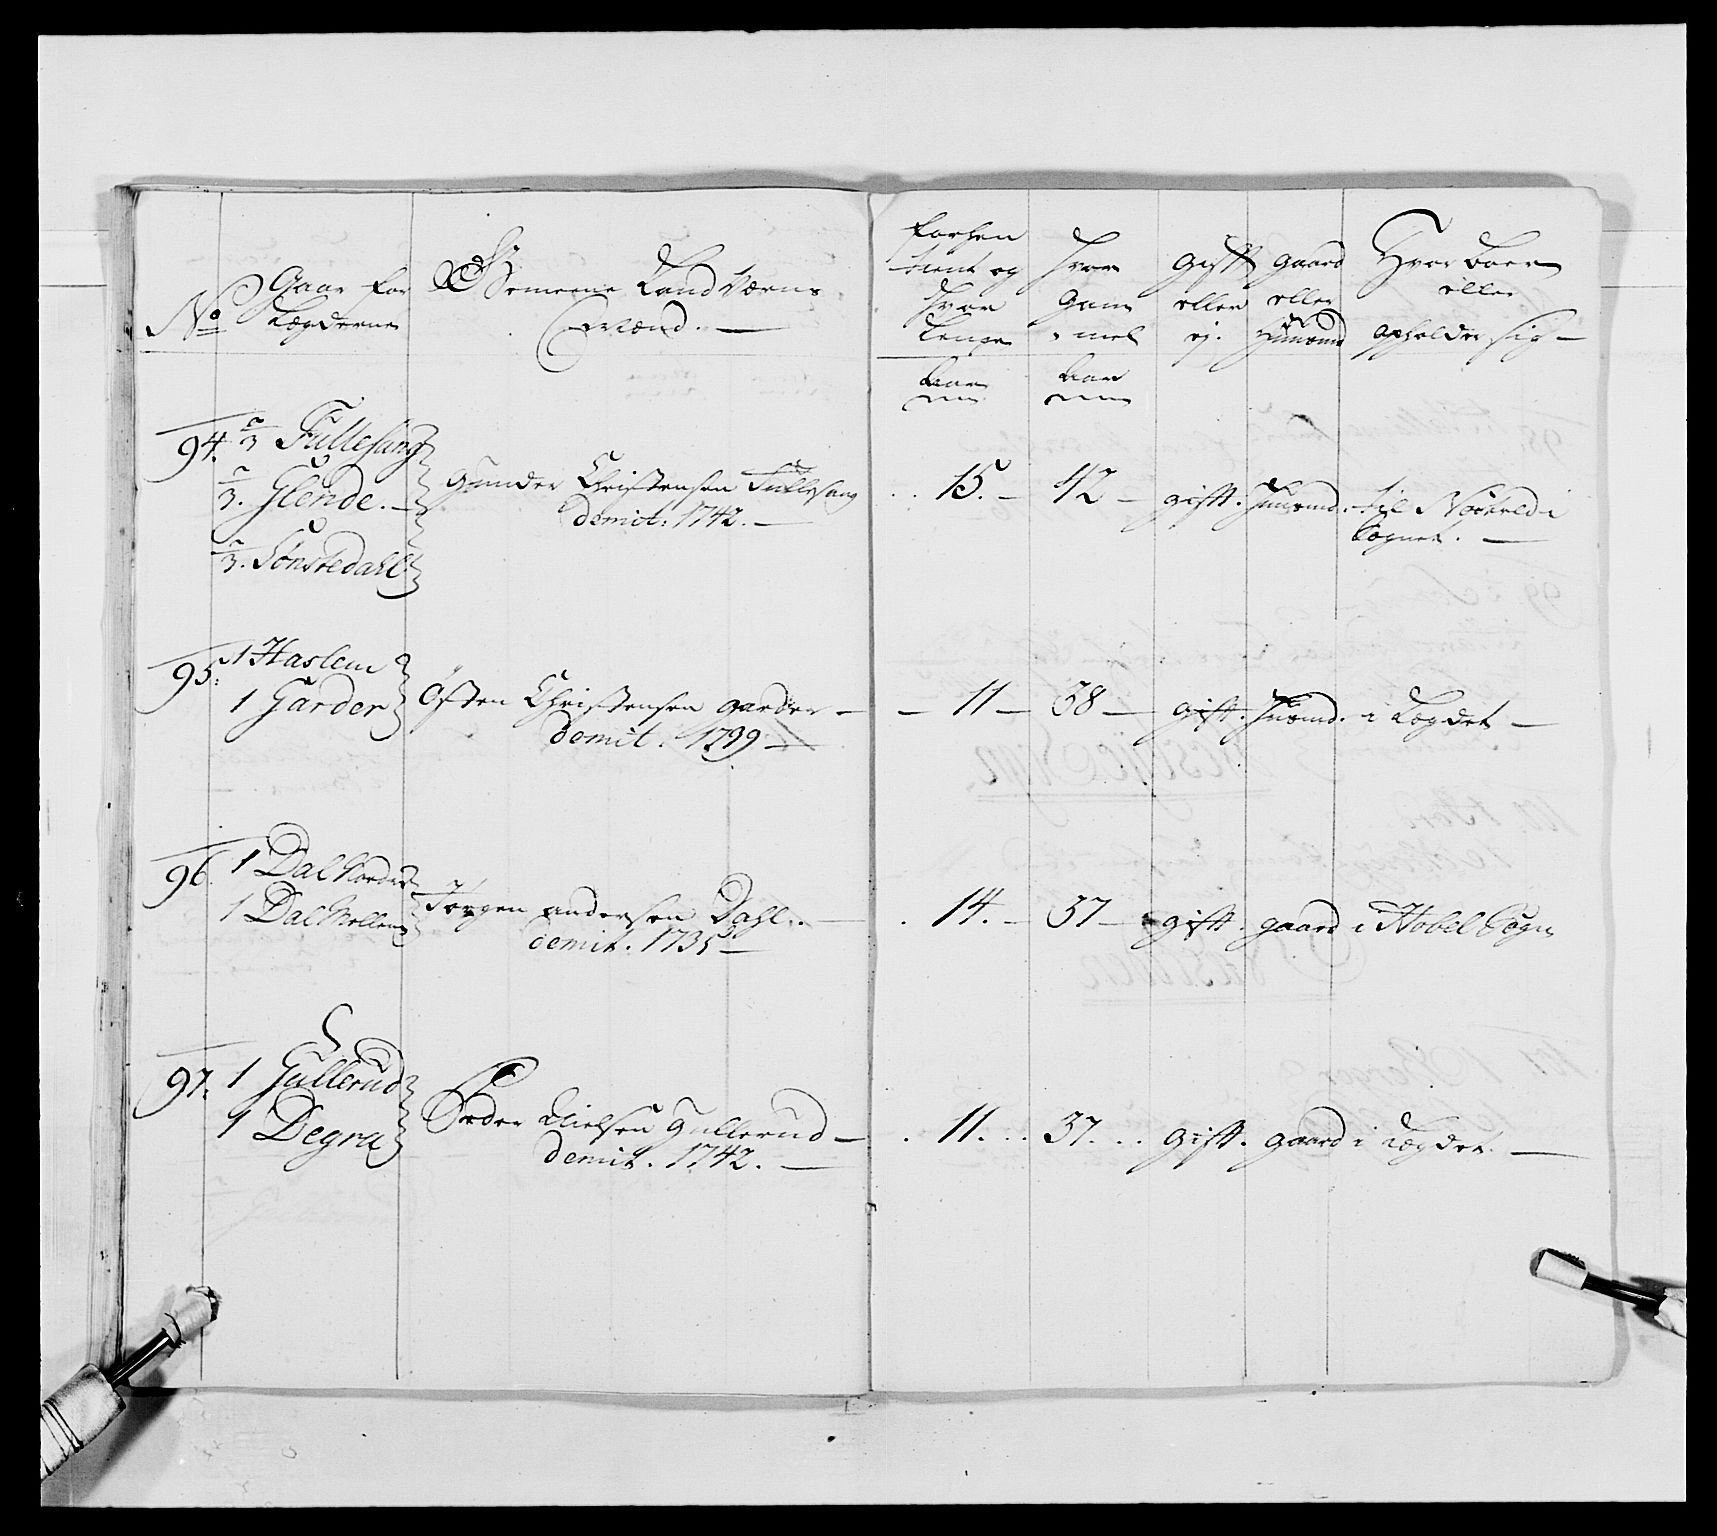 No
Gaar for
Lægderne
Gemeene Land Værns
Mænd.
forhen
tient og
hvor
lenge
hvor
Gam
mel
gift
eller
ej.
gaard
eller
Huusmd
Hvor boer
eller
opholder sig
Aar
Aar
94.
2/3 Fullesang
2/3. Glende.
2/3. Sonstedahl
Gunder Christensen Fullesang
demit: 1742.
15. 42 gift. Huusmd. til
Sognet.
95.
1 Haslem
1 Garder
Østen Christensen Garder
demit. 1739
11 38 gift. Huusmd. i Legdet
96.
1 Dal
1 Dal Mellem
Jørgen Andersen Dahl.
demit. 1735
14. 37 gift. gaard i Hobel Sogn
97.
1 Gullerud
1 Degra
Peder Nielsen Gullerud
demit. 1742.
11. 37. gift. gaard i Legdet.